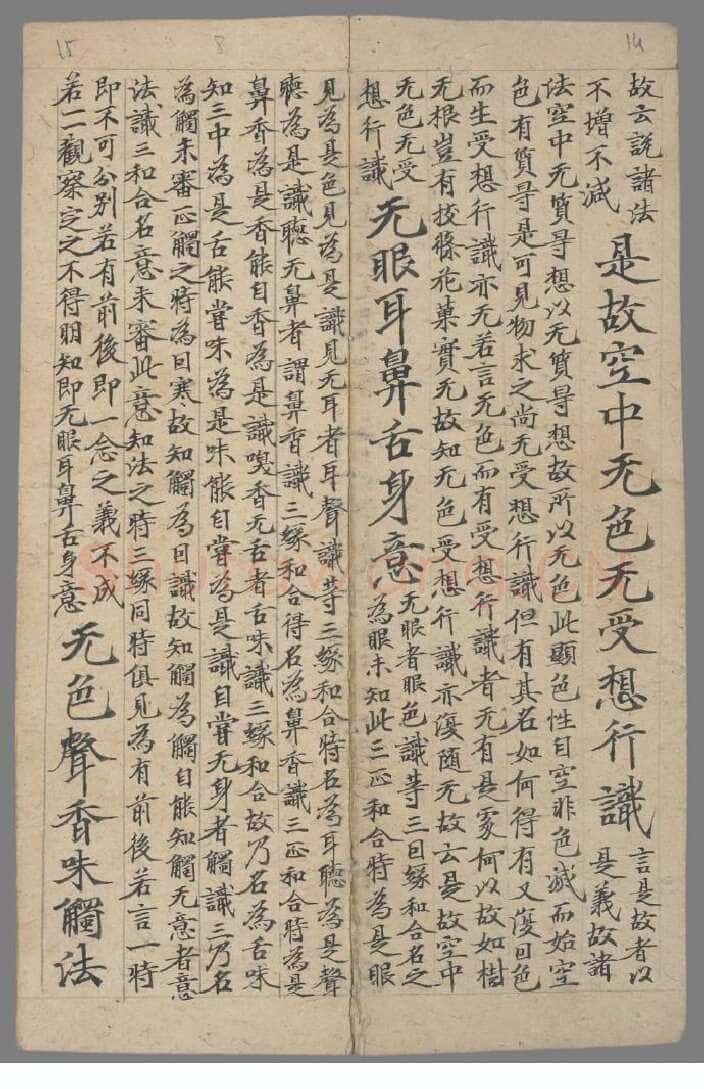 15 8 14
故云說諸法
不增不減
是故空中无色无受想行識
言是故者以
是義故諸
法空中无質导想以无質导想故所以无色此顯色性自空非色滅而始空
色有質导是可見物求之尚无受想行識但有其名如何得有又復回色
而生受想行識亦无若言无色而有受想行識者无有是處何以故如樹
无根豈有枝條花菓實无故知无色受想行識亦復随无故云是故空中
无色无受
想行識
无眼耳鼻舌身意
无眼者眼色識等三回緣和合名之
為眼未知此三正和合時為是眼
見為是色見為是識見无耳者耳聲識等三緣和合時名為耳聽為是聲
聽為是識聽无鼻者謂鼻香識三緣和合得名為鼻香識三正和合時為是
鼻香為是香能自香為是識嗅香无舌者舌味識三緣和合故乃名為舌味
知三中為是舌能甞味為是味能自甞為是識自甞无身者觸識三乃名
為觸未審正觸之時為回寒故知觸為回識故知觸為觸自能知觸无意者意
法識三和合名意未審此意知法之時三緣同時俱見為有前後若言一時
即不可分別若有前後即一念之義不成
若一一觀察定之不得明知即无眼耳鼻舌身意
无色聲香味觸法